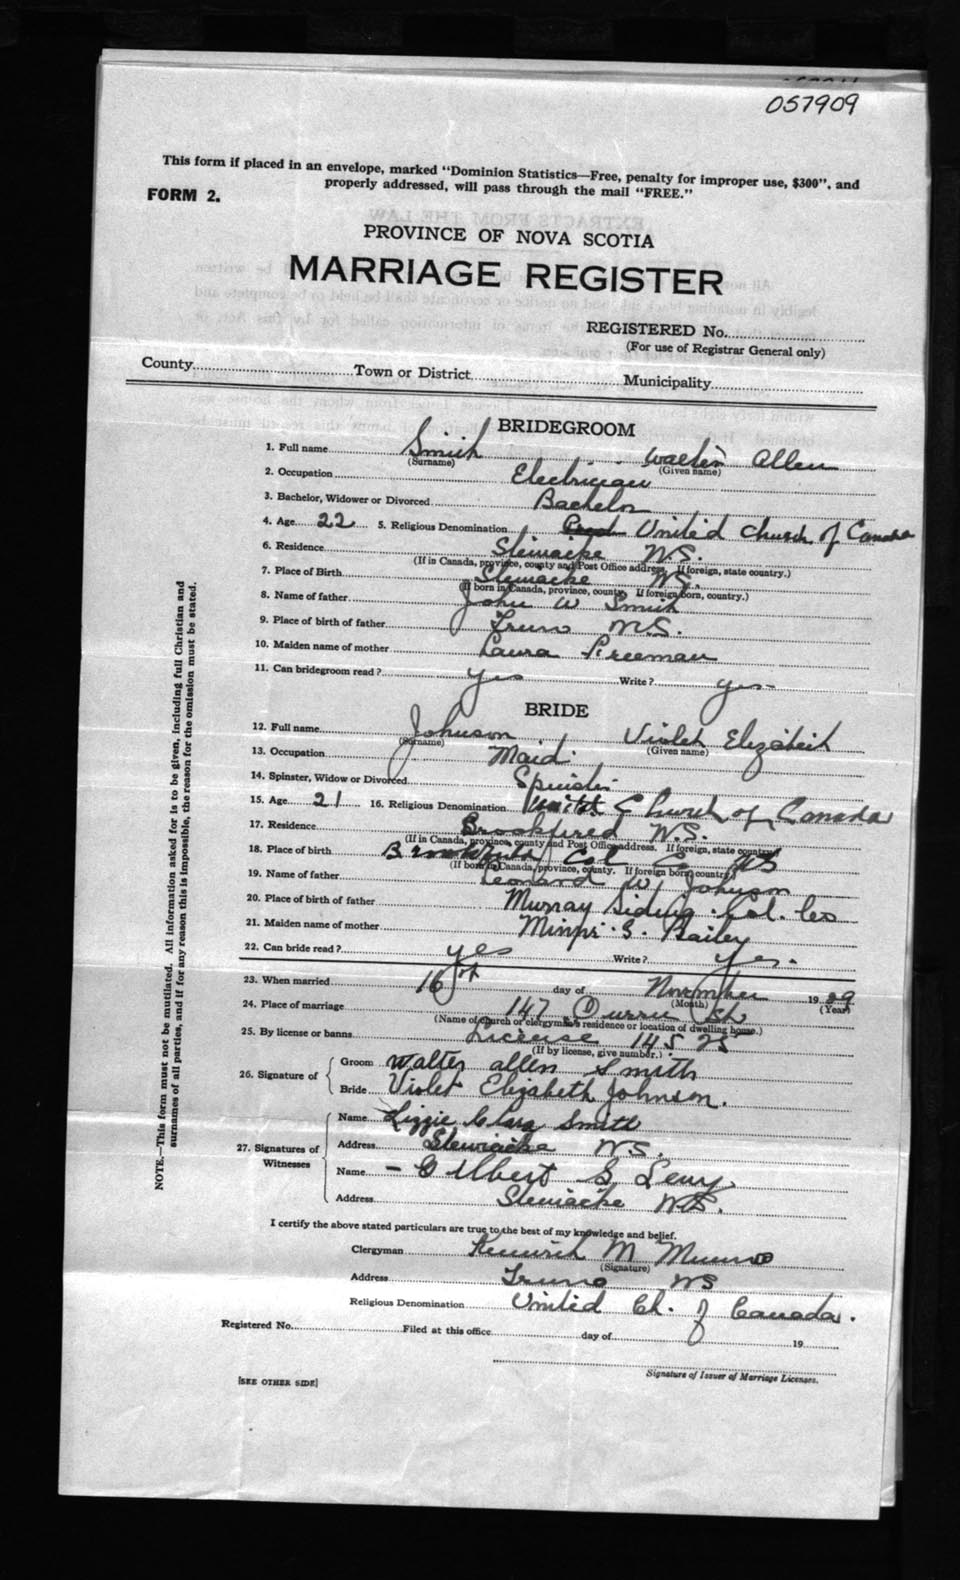 057909
This form if placed in an envelope, marked "Dominion Statistics—Free, penalty for improper use, $300", and
properly addressed, will pass through the mail "FREE."
FORM 2.
PROVINCE OF NOVA SCOTIA
MARRIAGE REGISTER
REGISTERED No.
(For use of Registrar General only)
County Town or District Municipality
BRIDEGROOM
1. Full name Smith Walter Allen
(Surname) (Given name)
2. Occupation Electrician
3. Bachelor, Widower or Divorced Bachelor
4. Age 22 5. Religious Denomination United Church of Canada
6. Residence Stewiacke N.S.
(If in Canada, province, county and Post Office address. If foreign, state country.)
7. Place of Birth Stewiacke N.S.
(If born in Canada, province, county. If foreign born, country.)
8. Name of father John W Smith
9. Place of birth of father Truro N.S.
10. Maiden name of mother Laura Freeman
11. Can bridegroom read? yes Write? yes-
BRIDE
12. Full name Johnson Violet Elizabeth
(Surname) (Given name)
13. Occupation Maid
14. Spinster, Widow or Divorced Spinster
15. Age 21 16. Religious Denomination United Church of Canada
17. Residence Brookfield N.S.
(If in Canada, province, county and Post Office address. If foreign, state country)
18. Place of birth Brookfield Col Co NS
(If born in Canada, province, county. If foreign born country)
19. Name of father Leonard W Johnson
20. Place of birth of father Murray Siding Col. Co
21. Maiden name of mother S. Bailey
22. Can bride read? yes Write? yes.
23. When married 16th day of November 1929
(Month) (Year)
24. Place of marriage 147 St
(Name of church or clergyman's residence or location of dwelling house.)
25. By license or banns License 14525
(If by license, give number.)
26. Signature of
Groom Walter allen Smith
Bride Violet Elizabeth Johnson.
27. Signatures of Witnesses
Name Lizzie Clara Smith
Address Stewiacke N.S.
Name - G Albert S
Address Stewiacke N.S.
I certify the above stated particulars are true to the best of my knowledge and belief.
Clergyman M Munro
(Signature)
Address Truro NS
Religious Denomination United Ch. of Canada.
Registered No. Filed at this office day of 19
Signature of Issuer of Marriage Licenses.
[SEE OTHER SIDE]
NOTE.—This form must not be mutilated. All information asked for is to be given, including full Christian and
surnames of all parties, and if for any reason this is impossible, the reason for the omission must be stated.